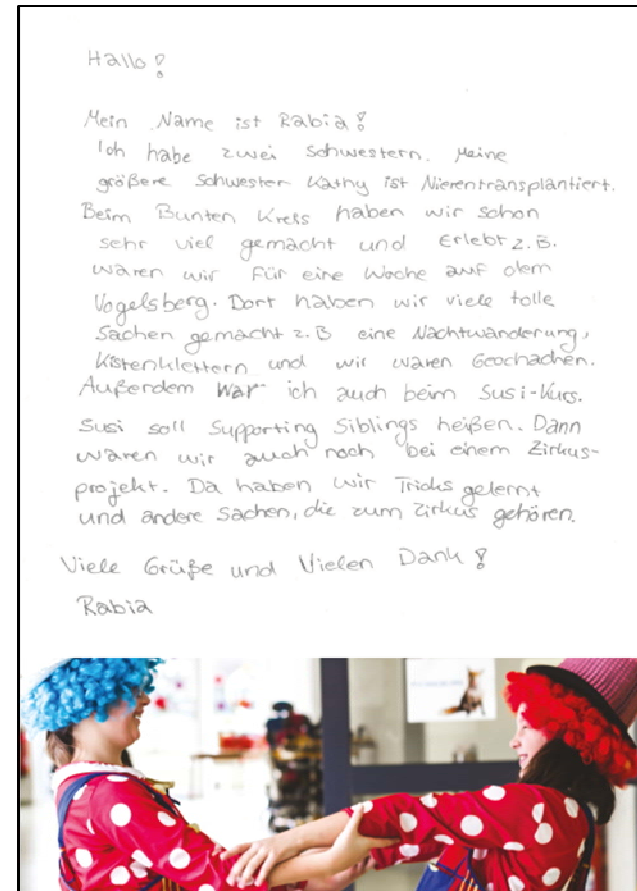 Hallo!
Mein Name ist Rabia!
Ich habe zwei Schwestern. Meine
größere Schwester Kathy ist Nierentransplantiert.
Beim Bunten Kreis haben wir schon
sehr viel gemacht und Erlebt z.B.
waren wir Für eine Woche auf dem
Vogelsberg. Dort haben wir viele tolle
Sachen gemacht z.B eine Nachtwanderung,
Kistenklettern und wir waren Geochachen.
Außerdem War ich auch beim Susi-Kurs.
Susi soll Supporting Siblings heißen. Dann
waren wir auch noch bei einem Zirkus-
projekt. Da haben wir Tricks gelernt
und andere Sachen, die zum Zirkus gehören.
Viele Grüße und Vielen Dank!
Rabia